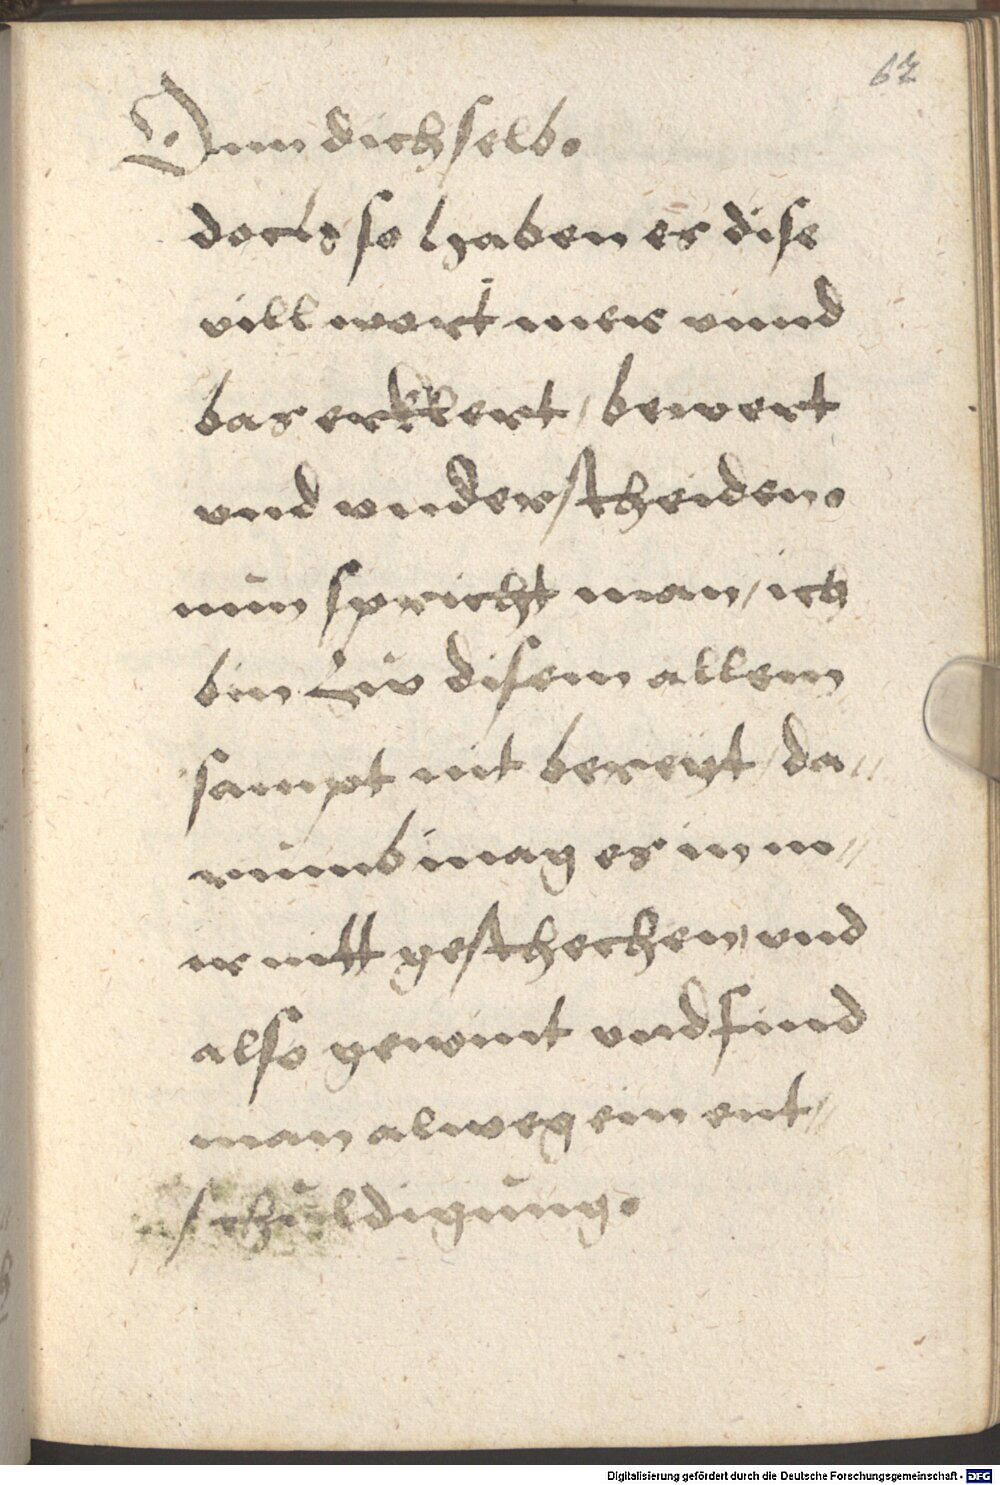 62
Dann dich selb.
doch so haben es dise
vill wort mer vnnd
bas erkklert / bewert
vnd vnderscheiden.
nun spricht man / ich
bin zuo disem allem
sampt nit bereyt / da//
rumb mag es in m//
ir nitt geschechen / vnd
also gewint vnd find
man alweg ein ent//
schuldigung.
Digitalisierung gefördert durch die Deutsche Forschungsgemeinschaft - DFG